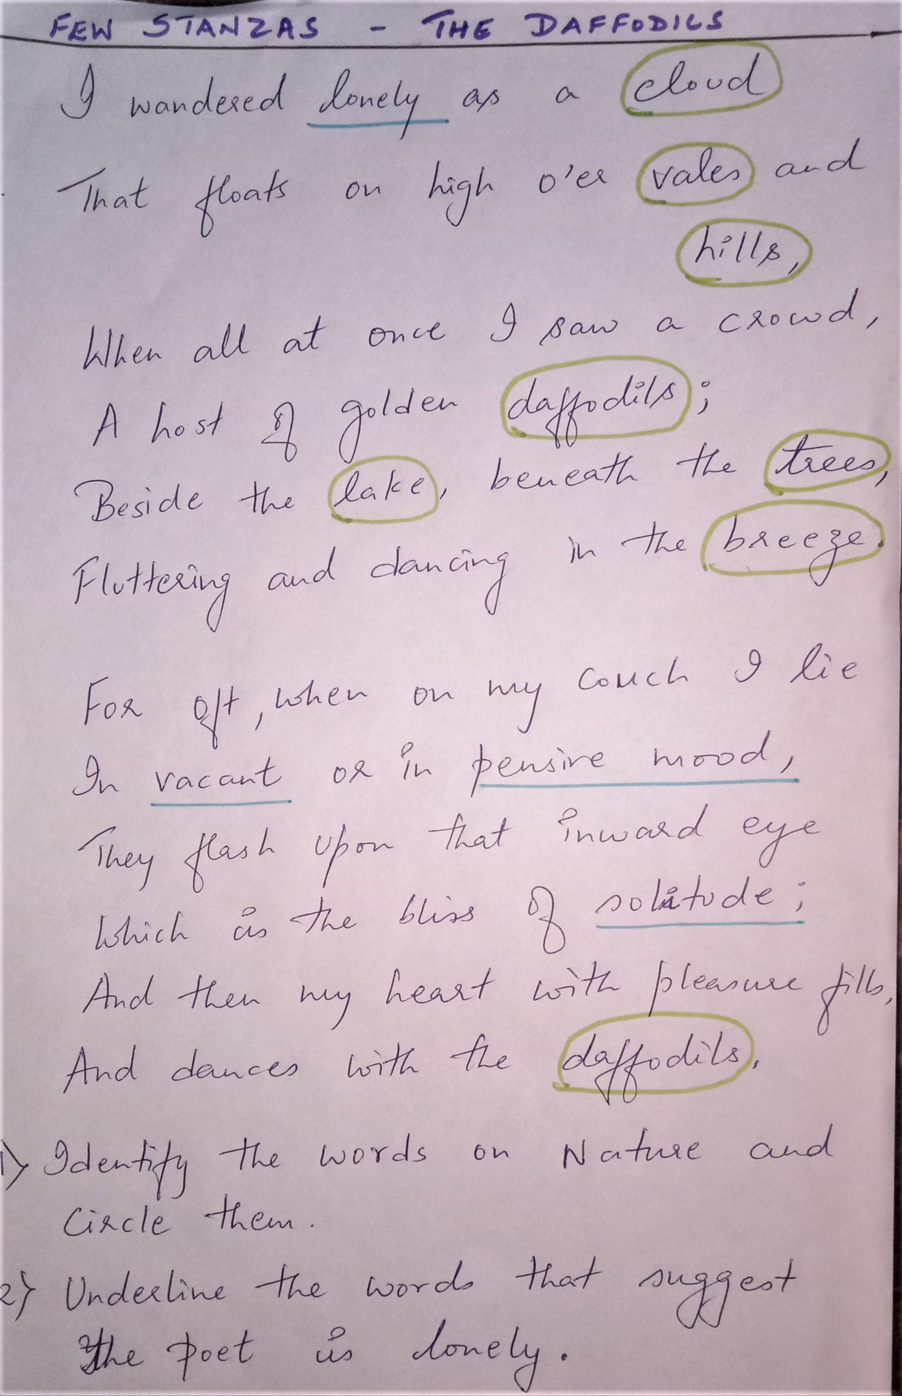 FEW STANZAS - THE DAFFODILS
I wandered lonely as a cloud
That floats on high o'er vales and
hills,
When all at once I saw a crowd,
A host of golden daffodils;
Beside the lake, beneath the trees,
Fluttering and dancing in the breeze.
For oft, when on my couch I lie
In vacant or in pensive mood,
They flash upon that inward eye
Which is the bliss of solitude;
And then my heart with pleasure fills,
And dances with the daffodils.
1) Identify the words on Nature and
Circle them.
2) Underline the words that suggest
the poet is lonely.